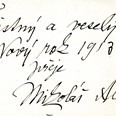 stný a veselý
Nový rok 19
přeje
Mikoláš Al